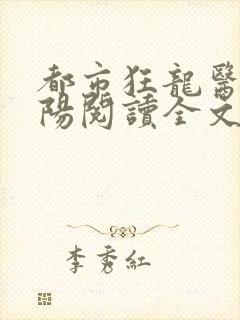 都市狂龍醫
陽閱讀全文
李秀紅